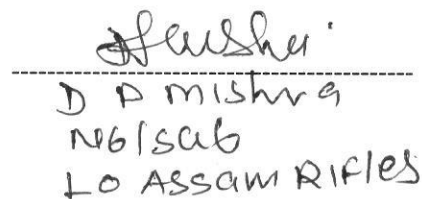 D P Mishra
NG/Sub
LO ASSam RIFles